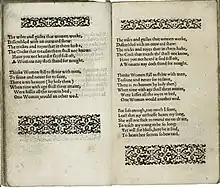 The wiles and guiles that women worke,
Dissembled with an outward shew:
The tricks and toyes that in them lurke,
The Cock that treads them shall not know,
Haue you not heard it said full oft,
A Womans nay doth stand for nought.
Thinke Women still to striue with men,
To sinne and neuer for to saint,
There is no heauen (by holy then)
When time with age shall them attaint,
Were kisses all the ioyes in bed,
One Woman would another wed.
The wiles and guiles that women worke,
Dissembled with an outward shew:
The tricks and toyes that in them lurke,
The Cock that treads them shall not know,
Haue you not heard it said full oft,
A Womans nay doth stand for nought.
Thinke Women still to striue with men,
To sinne and neuer for to saint,
There is no heauen (by holy then)
When time with age shall them attaint,
Were kisses all the ioyes in bed,
One Woman would another wed.
But soft enough, too much I feare,
Least that my mistresse heare my song,
She will not stick to round me on
To teach my toung to be so long:
Yet will she blush, here be it said,
To heare her secrets so bewraid.